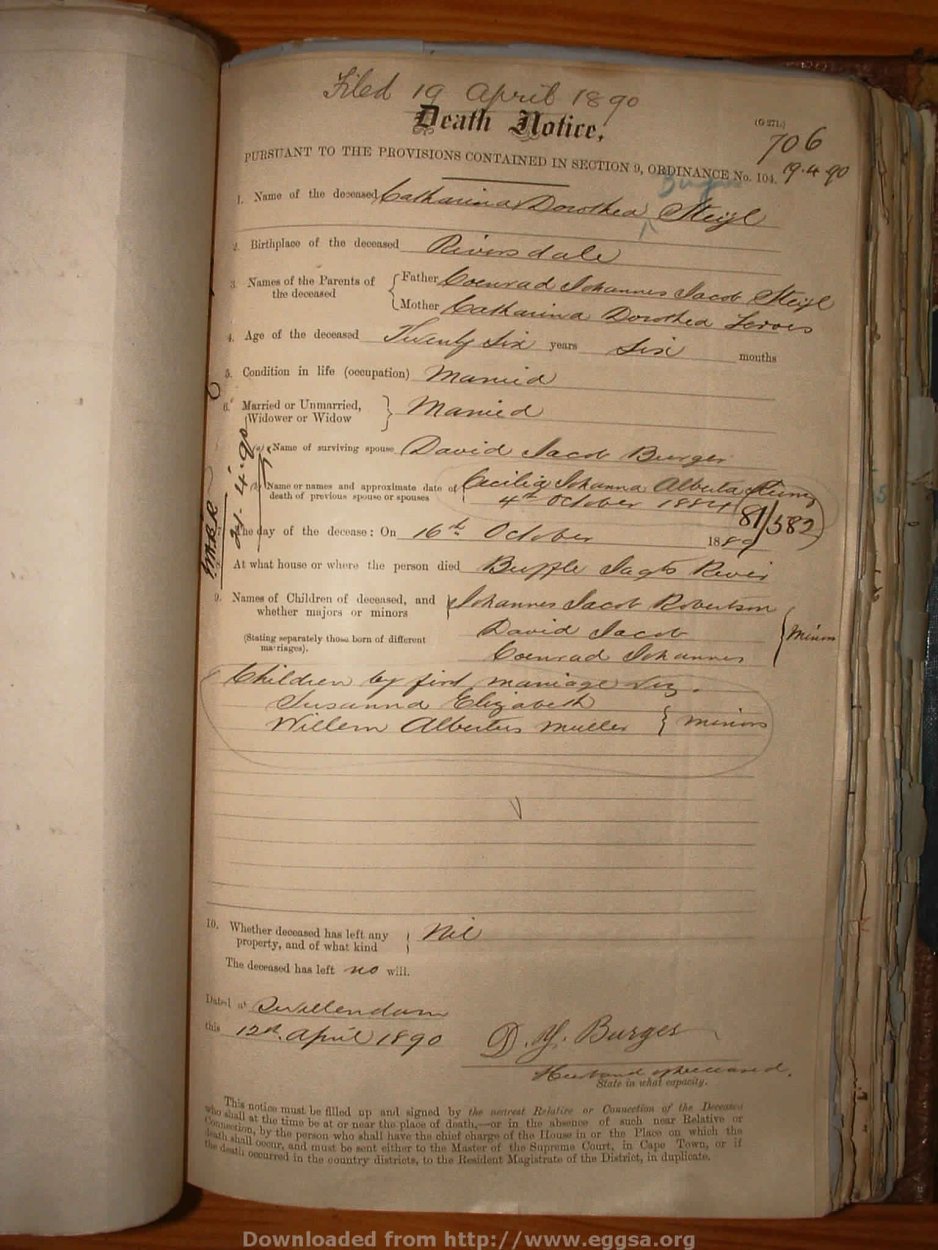 Filed 19 April 1890
Death Notice.
(G 271.)
706
19.4.90
PURSUANT TO THE PROVISIONS CONTAINED IN SECTION 9, ORDINANCE No. 104.
Burger
1. Name of the deceased Catharina Dorothea Steijl
2. Birthplace of the deceased Riversdale
3. Names of the Parents of the deceased
Father Coenraad Johannes Jacob Steijl
Mother Catharina Dorothea
4. Age of the deceased Twenty Six years Six months
5. Condition in life (occupation) Married
6. Married or Unmarried, Widower or Widow } Married
(a) Name of surviving spouse David Jacob Burger
(b) Name or names and approximate date of death of previous spouse or spouses Cecilia Johanna Alberta
4th October 1884
81/582
The day of the decease: On 16th October 1889
At what house or where the person died Buffle Jagts River
9. Names of Children of deceased, and whether majors or minors
(Stating separately those born of different marriages).
Johannes Jacob Robertson
David Jacob } Minors
Coenrad Johannes
Children by first marriage viz.
Susanna Elizabeth
Willem Albertus Muller } minors
10. Whether deceased has left any property, and of what kind } Nil
The deceased has left no will.
Dated at Swellendam
this 12th April 1890
D. J. Burger
Husband of deceased.
State in what capacity.
This notice must be filled up and signed by the nearest Relative or Connection of the Deceased
who shall at the time be at or near the place of death,—or in the absence of such near Relative or
Connection, by the person who shall have the chief charge of the House in or the Place on which the
death shall occur, and must be sent either to the Master of the Supreme Court, in Cape Town, or if
the death occurred in the country districts, to the Resident Magistrate of the District, in duplicate.
Downloaded from http://www.eggsa.org